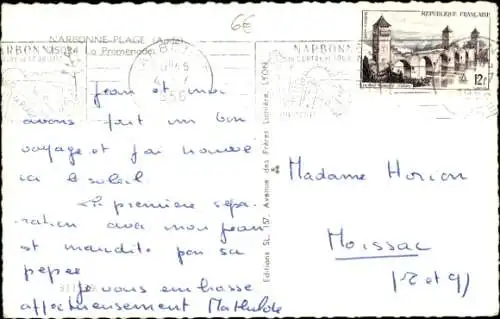 6€
NARBONNE-PLAGE (Aude)
La Promenade
NARBONNE
NARBONNE
1956
POSTES
REPUBLIQUE FRANÇAISE
12f
Jean et moi
avons fait un bon
voyage et j'ai trouvé
ici le soleil.
La première sépa-
ration avec mon Jean
est mandite par sa
pepee
Je vous embrasse
affectueusement Mathilde
Editions SL, 157, Avenue des Frères Lumière, LYON
Madame Horion
Moissac
(T et G)